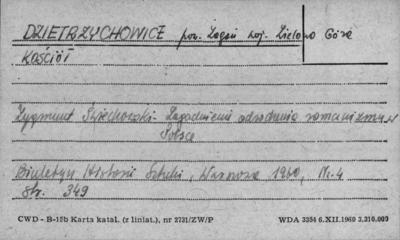 DZIETRZYCHOWICE pow. Żagań woj. Zielona Góra
KOŚCIÓŁ
Zygmunt Świechowski - Zagadnienie odrodzenia romanizmu w
Polsce
Biuletyn Historii Sztuki, Warszawa 1960, Nr. 4
str. 349
CWD - B-15b Karta katal. (z liniat.), nr 2731/ZW/P WDA 3354 6.XII.1969 3.310.000